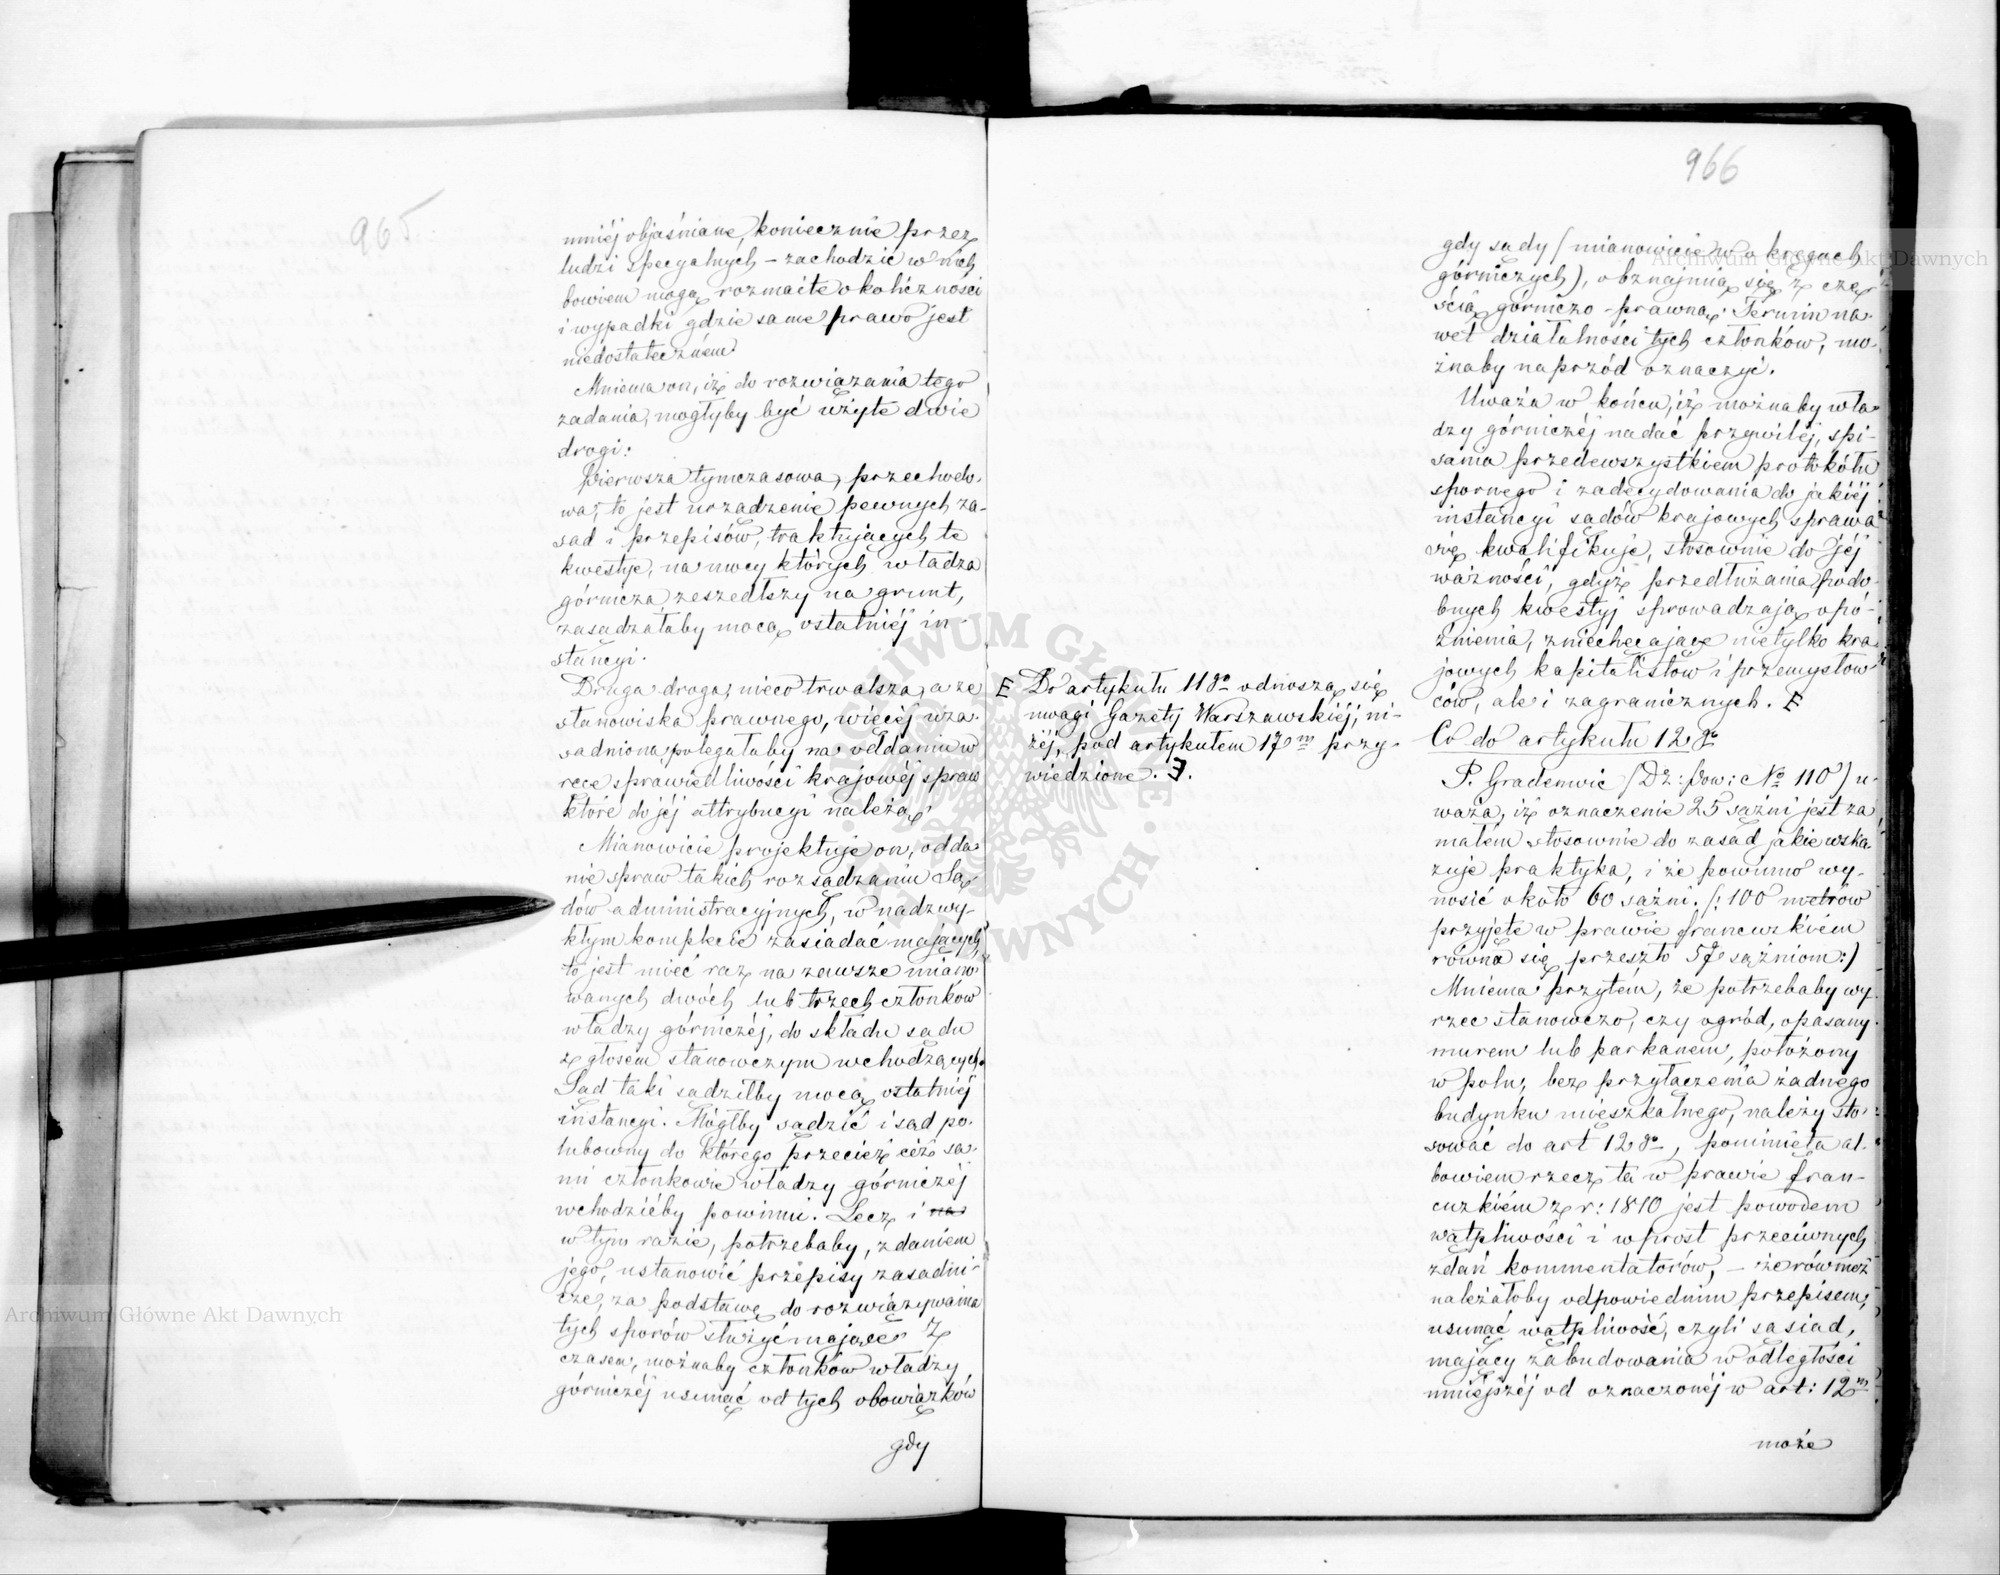 965
mniéj objaśniane, koniecznie przez
ludzi specyalnych – zachodzić w nich
bowiem mogą rozmaite okoliczności
i wypadki gdzie same prawo jest
niedostateczném.
Mniema on, iż do rozwiązania tego
zadania, mogłyby być użyte dwie
drogi:
Pierwsza tymczasowa, przechodo-
wa, to jest urządzenie pewnych za-
sad i przepisów, traktujących te
kwestye, na mocy których władza
górnicza zeszedłszy na grunt,
zasądzałaby mocą ostatniéj in-
stancyi.
Druga droga, nieco trwalsza, a ze
stanowiska prawnego, więcéj uza-
sadniona, polegałaby na oddaniu w
ręce sprawiedliwości krajowéj spraw
które do jéj attrybucyi należą.
Mianowicie projektuje on, odda-
nie spraw takich rozsądzaniu Są-
dów administracyjnych, w nadzwy-
kłym komplecie zasiadać mających,
to jest mieć raz na zawsze miano-
wanych dwóch lub trzech członków
władzy górniczéj, do składu sądu
z głosem stanowczym wchodzących.
Sąd taki sądziłby mocą ostatniéj
instancyi. Mógłby sądzić i sąd po-
lubowny do którego przecież ciż sa-
mi członkowie władzy górniczéj
wchodzićby powinni. Lecz i na
w tym razie, potrzebaby, zdaniem
jego, ustanowić przepisy zasadni-
cze, za podstawę do rozwiązywania
tych sporów służyć mające. Z
czasem, możnaby członków władzy
górniczéj usunąć od tych obowiązków
gdy
E Do artykułu 11go odnoszą się
uwagi Gazety Warszawskiéj, ni-
żéj, pod artykułem 17m przy-
wiedzione. Ǝ.
966
gdy sądy (mianowicie w okręgach
górniczych), obznajmią się z czę-
ścią górniczo-prawną. Termin na-
wet działalności tych członków, mo-
żnaby naprzód oznaczyć.
Uważa w końcu, iż możnaby wła-
dzy górniczéj nadać przywiléj, spi-
sania przedewszystkiem protokółu
spornego i zadecydowania do jakiéj
instancyi sądów krajowych sprawa
się kwalifikuje, stosownie do jéj
ważności, gdyż przedłużania podo-
bnych kwestyj sprowadzają opó-
źnienia, zniechęcające nietylko kra-
jowych kapitalistów i przemysłow-
ców, ale i zagranicznych. E
Co do artykułu 12go
P. Gradenwic (Dz: Pow: No 110) u-
waża, iż oznaczenie 25 sążni jest za
małém stosownie do zasad jakie wska-
zuje praktyka, i że powinno wy-
nosić około 60 sążni. (: 100 metrów
przyjęte w prawie francuzkiém
równa się przeszło 57 sążniom:)
Mniema przytém, że potrzebaby wy-
rzec stanowczo, czy ogród, opasany
murem lub parkanem, położony
w polu, bez przyłączenia żadnego
budynku mieszkalnego, należy sto-
sować do art 12go, pominięta al-
bowiem rzecz ta w prawie fran-
cuzkiém z r: 1810 jest powodem
wątpliwości i wprost przeciwnych
zdań kommentatorów, – że również
należałoby odpowiednim przepisem,
usunąć wątpliwość, czyli sąsiad,
mający zabudowania w odległości
mniejszéj od oznaczonéj w art: 12m
może
Archiwum Główne Akt Dawnych
Archiwum Główne Akt Dawnych
ARCHIWUM GŁÓWNE AKT DAWNYCH